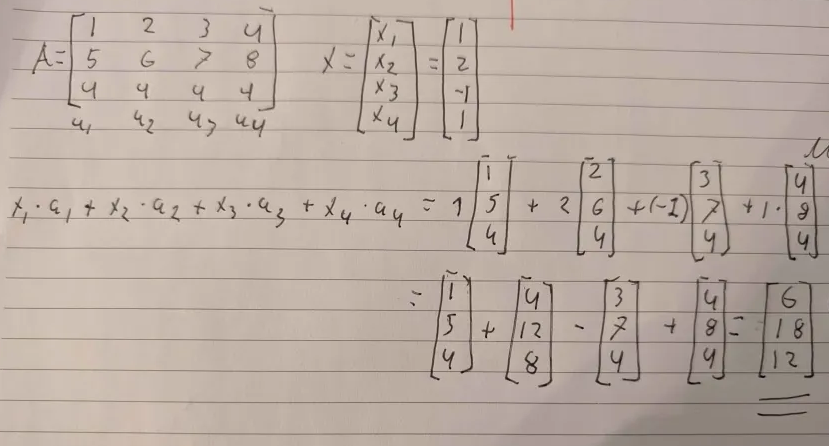 A = [1 2 3 4; 5 6 7 8; 4 4 4 4] x = [x₁; x₂; x₃; x₄] = [1; 2; -1; 1]
a₁ a₂ a₃ a₄
x₁ · a₁ + x₂ · a₂ + x₃ · a₃ + x₄ · a₄ = 1 [1; 5; 4] + 2 [2; 6; 4] + (-1) [3; 7; 4] + 1 · [4; 8; 4]
= [1; 5; 4] + [4; 12; 8] - [3; 7; 4] + [4; 8; 4] = [6; 18; 12]